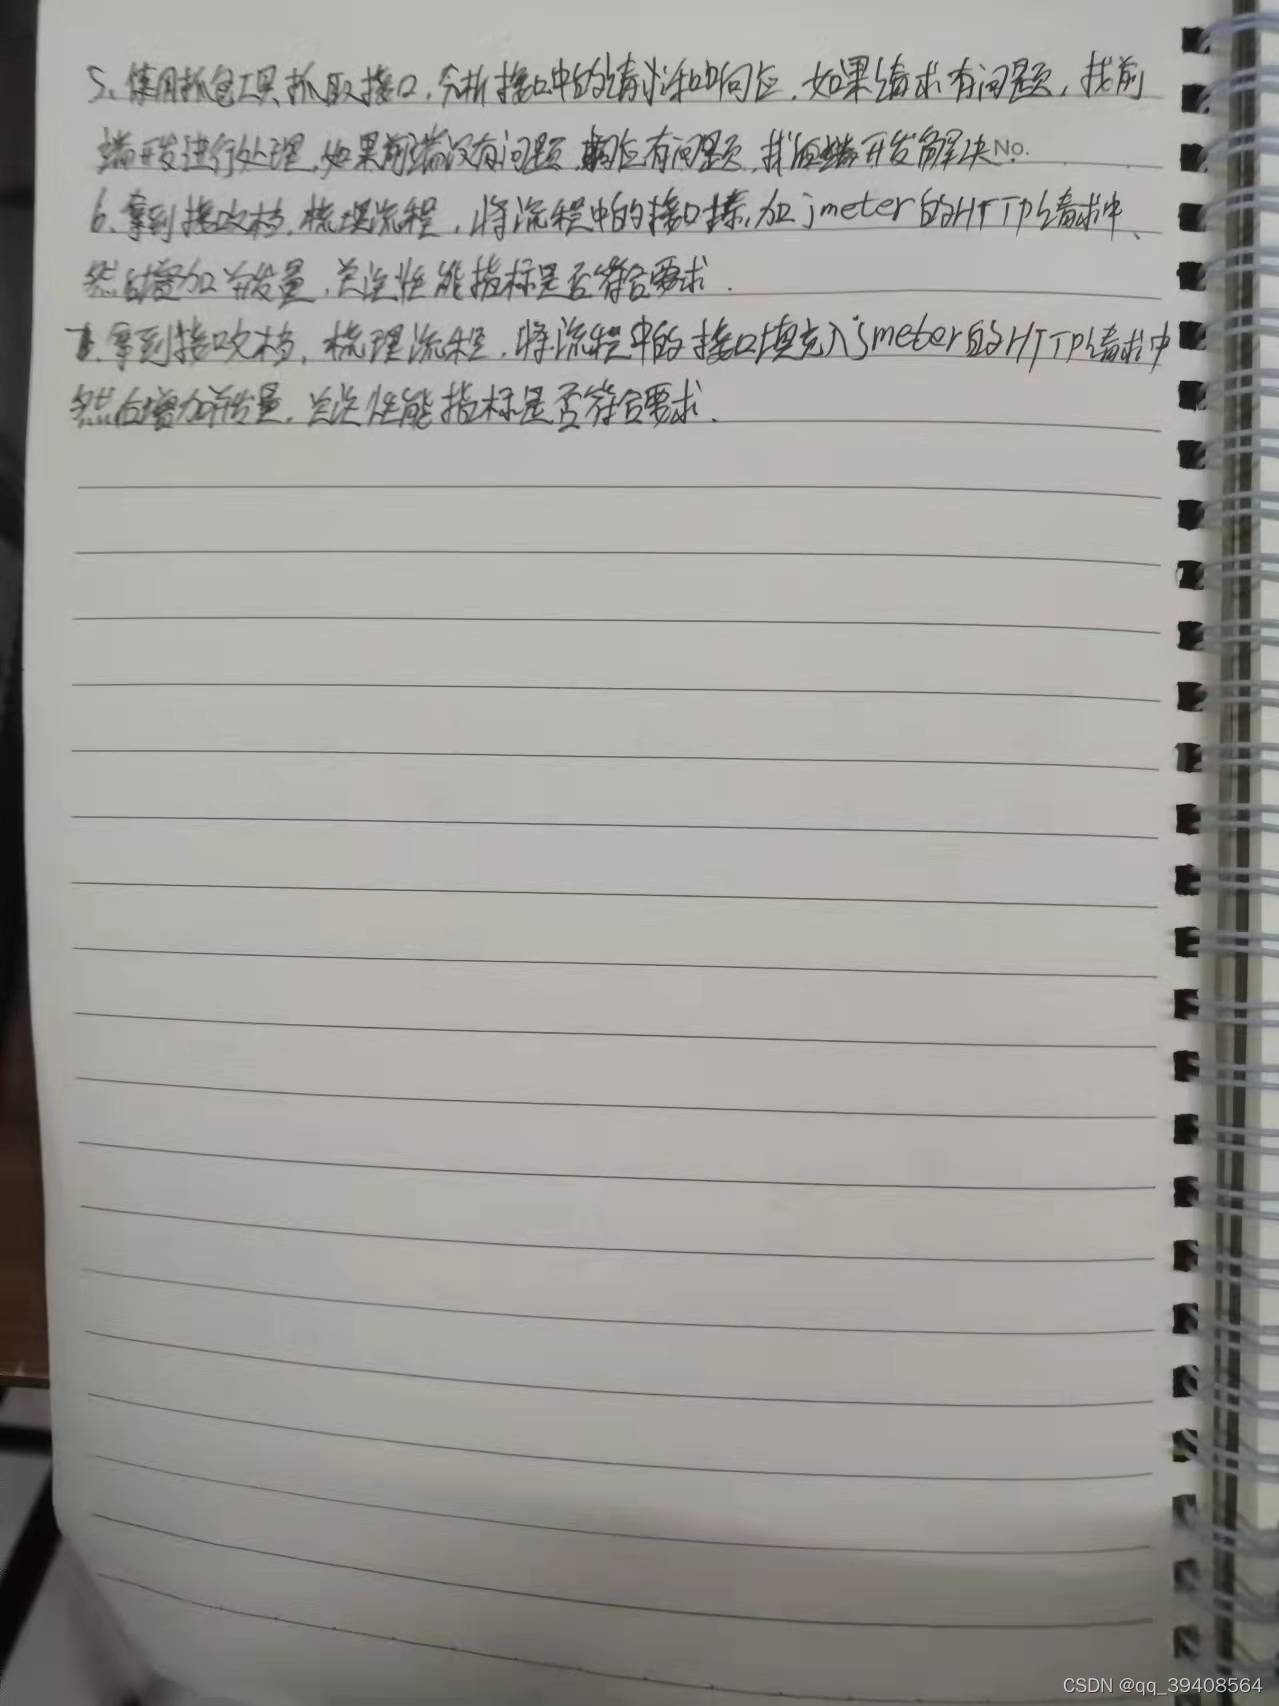 5、使用抓包工具抓取接口,分析接口中的请求和响应,如果请求有问题,找前
端开发进行处理,如果前端没有问题,响应有问题,找后端开发解决 No.
6、拿到接口文档,梳理流程,将流程中的接口添加jmeter的HTTP请求中、
然后增加并发量,关注性能指标是否符合要求.
拿到接口文档,梳理流程,将流程中的接口填充入jmeter的HTTP请求中
然后增加并发量,关注性能指标是否符合要求.
CSDN @qq_39408564